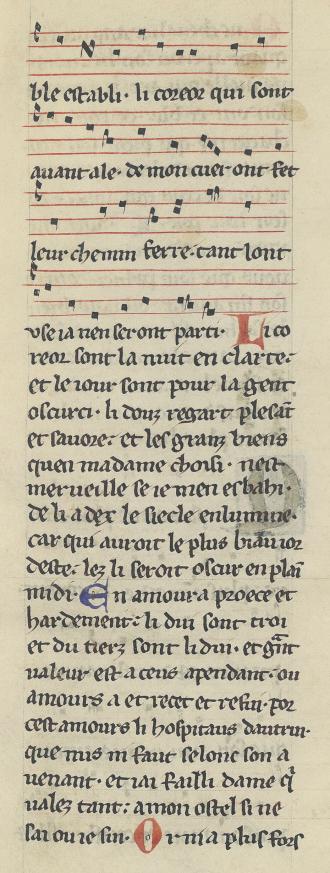 ble establi. li coreor qui sont
auant ale. de mon cuer ont fet
leur chemin ferre. tant lont
vse ia nen seront parti. Li co
reor sont la nuit en clarte.
et le iour sont pour la gent
oscurci. li douz regart plesāt
et sauore. et les granz biens
quen madame choisi. nest
merueille se ie men esbahi.
de li a dex le siecle enlumine.
car qui auroit le plus biau ior
deste. lez li seroit oscur en plaī
midi. En amour a proece et
hardement. li dui sont troi
et du tierz sont li dui. et grāt
valeur est a ceus apendant. ou
amours a et recet et refui. por
cest amours li hospitaus dautrui.
que nus ni faut selonc son a
uenant. et iai failli dame q̄
valez tant. a mon ostel si ne
sai ou ie sui. Or ni a plus fors